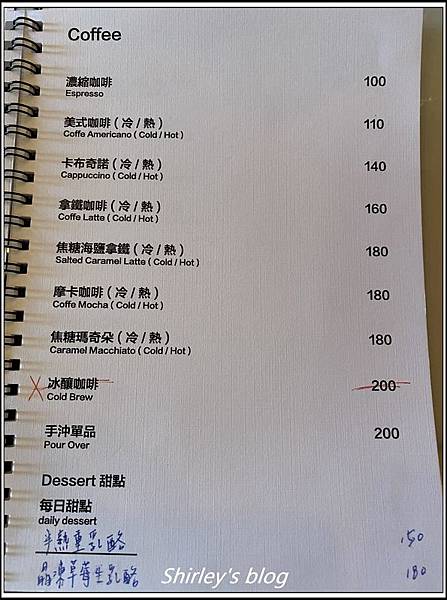 Coffee
濃縮咖啡 100
Espresso
美式咖啡 ( 冷 / 熱 ) 110
Coffe Americano ( Cold / Hot )
卡布奇諾 ( 冷 / 熱 ) 140
Cappuccino ( Cold / Hot )
拿鐵咖啡 ( 冷 / 熱 ) 160
Coffe Latte ( Cold / Hot )
焦糖海鹽拿鐵 ( 冷 / 熱 ) 180
Salted Caramel Latte ( Cold / Hot )
摩卡咖啡 ( 冷 / 熱 ) 180
Coffe Mocha ( Cold / Hot )
焦糖瑪奇朵 ( 冷 / 熱 ) 180
Caramel Macchiato ( Cold / Hot )
冰釀咖啡 200
Cold Brew
手沖單品 200
Pour Over
Dessert 甜點
每日甜點
daily dessert
半熱重乳酪 150
晶凍草莓生乳酪 180
Shirley's blog